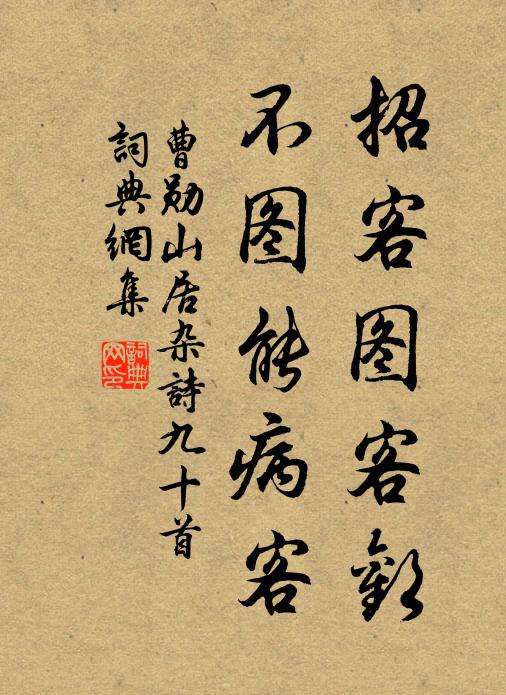 招客图客歡
不图能病客
曹勋山居杂詩九十首
詞典網集
詞典网印